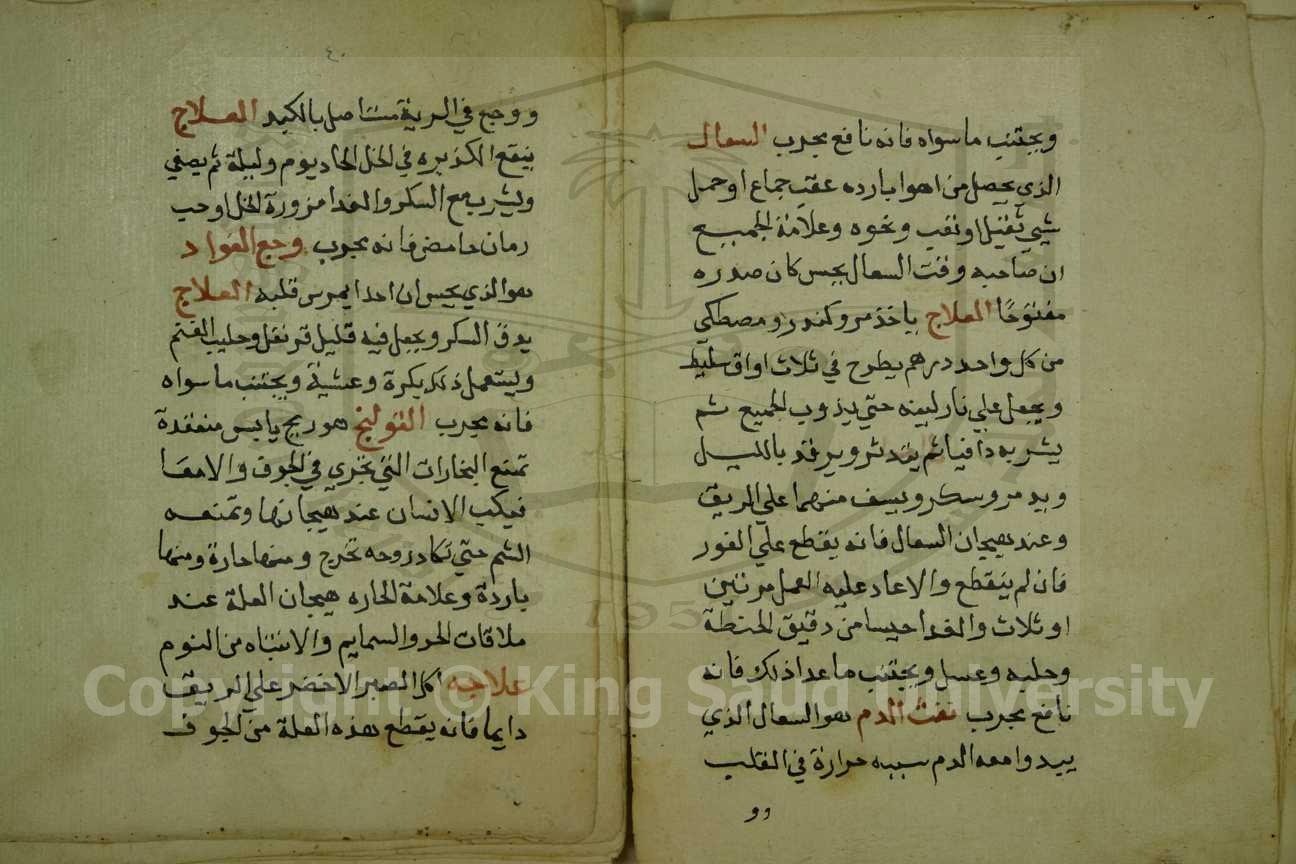 ويجتنب ماسواه فانه نافع مجرب السعال
الذي يحصل من اهوا بارده عقب جماع او حمل
شيي ثقيل او تعب ونحوه وعلامة الجميع
ان صاحبه وقت السعال يحس كان صدره
مفتوحا العلاج ياخذ مر وكندر ومصطكي
من كل واحد درهم يطرح في ثلاث اواق سليط
ويجعل علي نار لينه حتي يذوب الجميع ثم
يشربه دافيا ثم يتدثر ويرقد بالليل
ويدمر وسكر ويسف منهما علي الريق
وعند هيجان السعال فانه يقطع علي الفور
فان لم ينقطع والا عاد عليه العمل مرتين
او ثلاث والغدا حيسا من دقيق الحنطة
وحلبه وعسل ويجتنب ماعدا ذلك فانه
نافع مجرب نفث الدم هو السعال الذي
يبدوا معه الدم سببه حرارة في القلب
وو
٤٠
ووجع في الرية متاصل بالكبد العلاج
ينقع الكزبره في الخل الحاد يوم وليلة ثم يصفي
ويشرب مع السكر والغدا مزورة الخل او حب
رمان حامض فانه مجرب وجع الفواد
هو الذي يحس ان احدا يمرس قلبه العلاج
يدق السكر ويجعل فيه قليل قرنفل وحليب الغنم
ويستعمل ذلك بكرة وعشية ويجتنب ماسواه
فانه مجرب القولنج هو ريح يابس منعقدة
تمنع البخارات التي تجري في الجوف والامعا
فيكب الانسان عند هيجانها وتمنعه
الشم حتي تكاد روحه تخرج ومنها حارة ومنها
باردة وعلامة الحاره هيجان العلة عند
ملاقات الحر والسمايم والانتباه من النوم
علاجه اكل الصبر الاخضر علي الريق
دايما فانه يقطع هذه العلة من الجوف
1957
Copyright © King Saud University